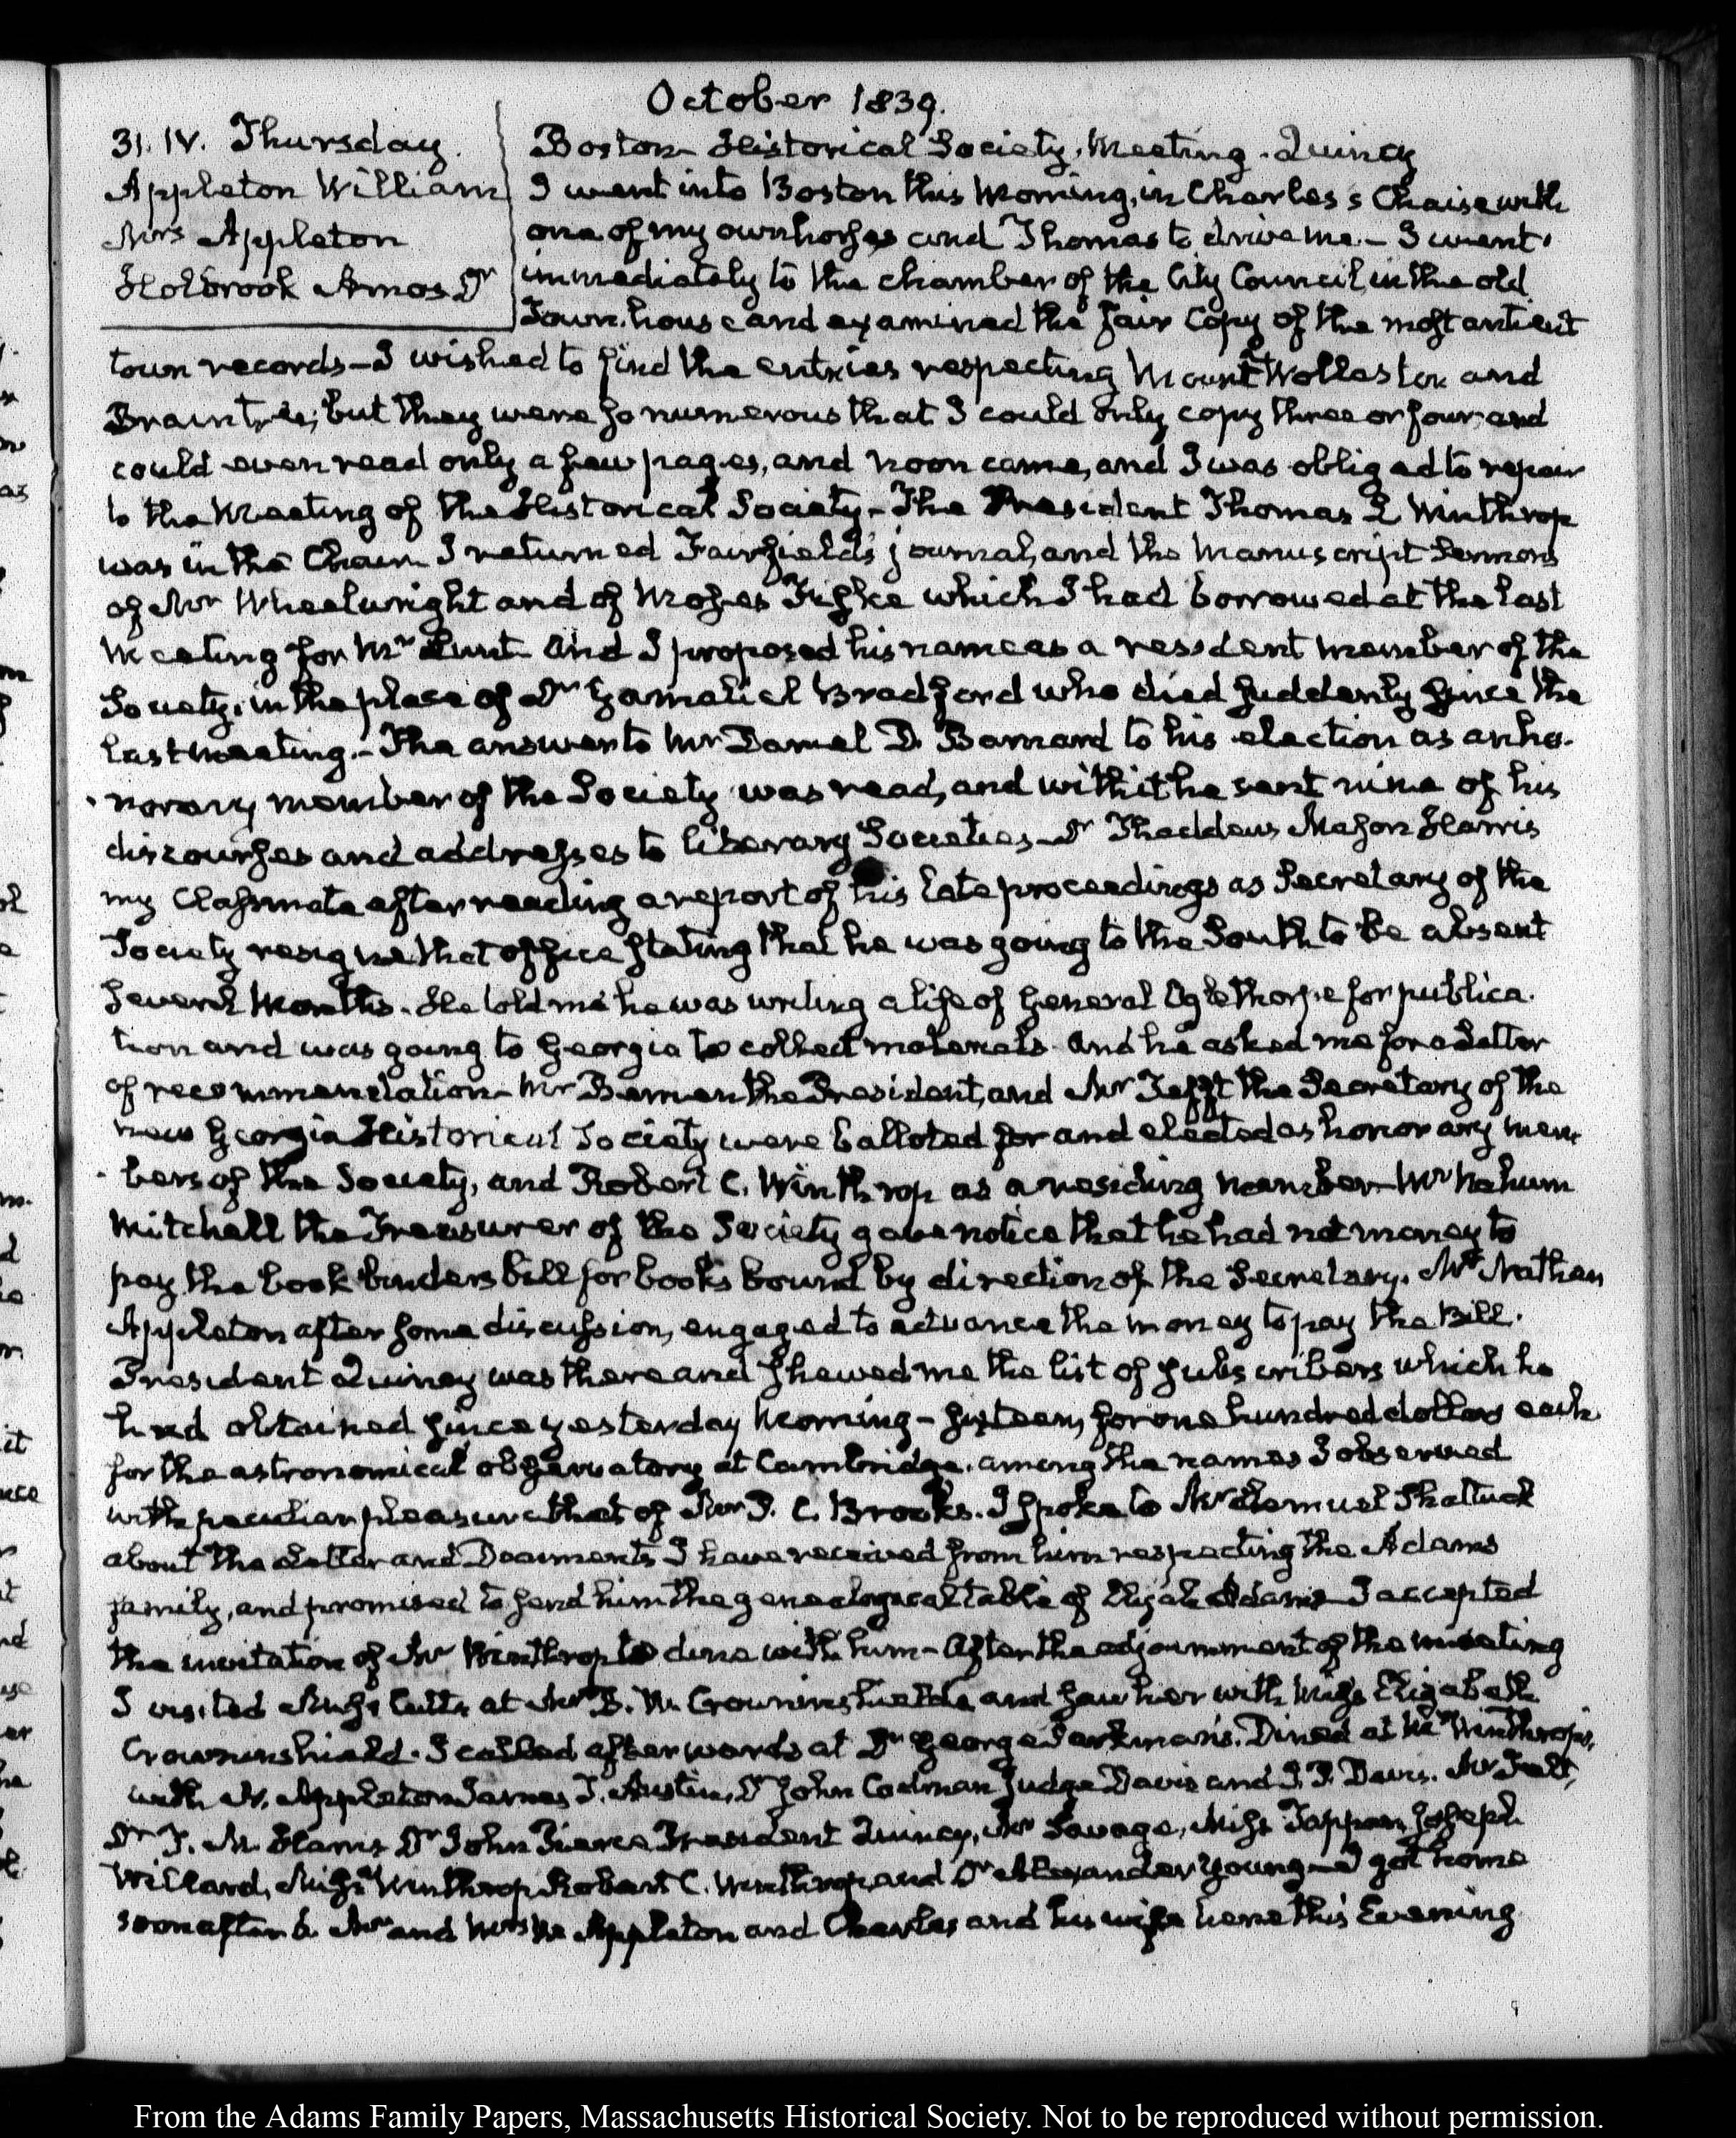 October 1839.
31. IV. Thursday.
Appleton William
Mrs Appleton
Holbrook Amos Dr
Boston Historical Society, Meeting. Quincy
I went into Boston this Morning, in Charles's Chaise with
one of my own horses and Thomas to drive me. - I went
immediately to the chamber of the City Council in the old
Town-house and examined the fair Copy of the most antient
town records - I wished to find the entries respecting Mount Wollaston and
Braintree; but they were so numerous that I could only copy three or four, and
could even read only a few pages, and noon came, and I was obliged to repair
to the Meeting of the Historical Society - The President Thomas L. Winthrop
was in the Chair. I returned Fairfield's journal, and the Manuscript Sermons
of Mr Wheelwright and of Moses Fiske which I had borrowed at the last
Meeting for Mr Lunt. And I proposed his name as a resident member of the
Society, in the place of Dr Gamaliel Bradford who died suddenly since the
last meeting. - The answer to Mr Daniel D. Barnard to his election as an ho-
norary member of the Society was read, and with it he sent nine of his
discourses and addresses to literary Societies - Dr Thaddeus Mason Harris
my Classmate after reading a report of his late proceedings as Secretary of the
Society resigned that office stating that he was going to the South, to be absent
several Months. He told me he was writing a life of General Oglethorpe for publica-
tion and was going to Georgia to collect materials. And he asked me for a Letter
of recommendation - Mr the President, and Mr Tefft the Secretary of the
new Georgia Historical Society were balloted for and elected as honorary mem-
bers of the Society, and Robert C. Winthrop as a residing member - Mr Nahum
Mitchell the Treasurer of the Society gave notice that he had not money to
pay the book binders bill for books bound by direction of the Secretary. Mr Nathan
Appleton after some discussion, engaged to advance the money to pay the Bill.
President Quincy was there and shewed me the list of subscribers which he
had obtained since yesterday Morning - sixteen, for one hundred dollars each
for the astronomical observatory at Cambridge, among the names I observed
with peculiar pleasure that of Mr P. C. Brooks. I spoke to Mr Lemuel Shattuck
about the Letter and Documents I have received from him respecting the Adams
family, and promised to send him the genealogical table of Elijah Adams - I accepted
the invitation of Mr Winthrop to dine with him - After the adjournment of the meeting
I visited Miss Cutts at Mr B. W. Crowninshield's and saw her with Miss Elizabeth
Crowninshield. I called afterwards at Dr George Parkman's. Dined at Mr Winthrop's,
with N. Appleton James T. Austin, Dr John Codman Judge Davis and I. P. Davis. Mr Felt,
Dr T. M. Harris Dr John Pierce President Quincy, Mr Savage, Miss Tappan, Joseph
Willard, Miss Winthrop Robert C. Winthrop, and Dr Alexander Young - I got home
soon after 6. Mr and Mrs W. Appleton and Charles and his wife here this Evening
From the Adams Family Papers, Massachusetts Historical Society. Not to be reproduced without permission.